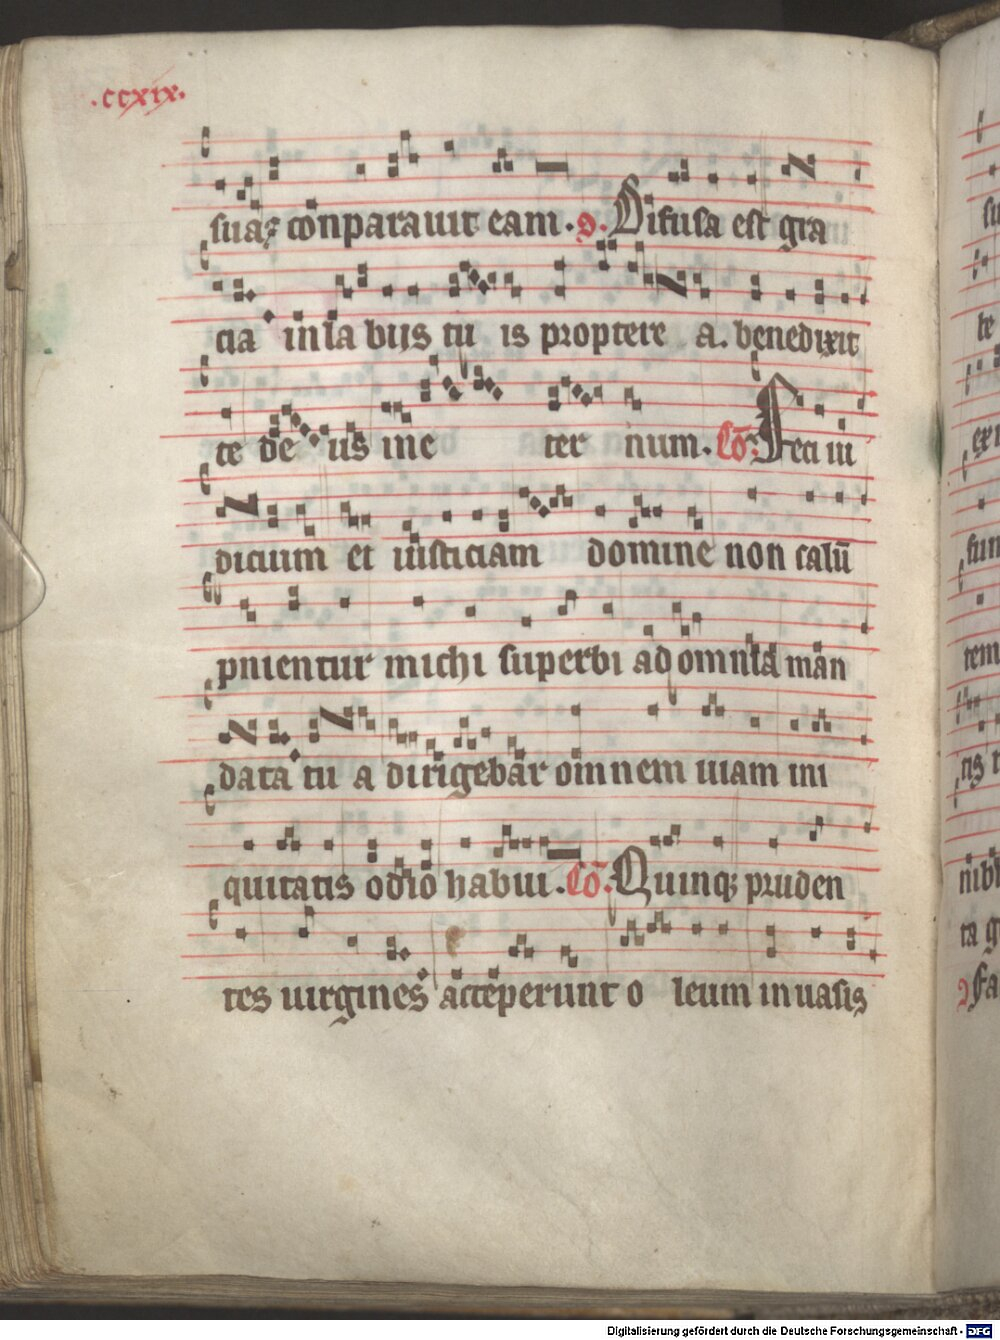 .ccxix.
suaꝝ conparauit eam. O. Difusa est gra
cia in la bijs tu is proptere a. benedixit
te de us in e ter num. Co. Feci iu
dicium et iusticiam domine non calū
pnientur michi superbi ad omnia man
data tu a dirigebar omnem uiam ini
quitatis odio habui. Co. Quinqꝫ pruden
tes uirgines acceperunt o leum in uasis
te
tem
tis
nibi
ta
Fa
Digitalisierung gefördert durch die Deutsche Forschungsgemeinschaft - DFG